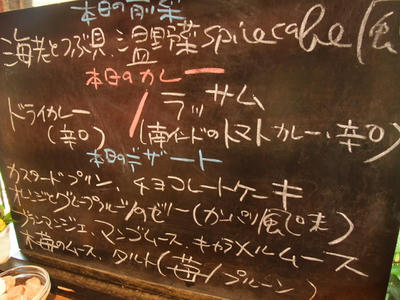 本日の前菜
海老とつぶ貝、温野菜 spice cake (
本日のカレー
ドライカレー / ラッサム
(辛口) (南インドのトマトカレー、辛口)
本日のデザート
カスタードプリン、チョコレートケーキ
オレンジとグレープフルーツのゼリー(カンパリ風味)
ブランマンジェ、マンゴムース、キャラメルムース
木苺のムース、タルト(苺/プルーン)